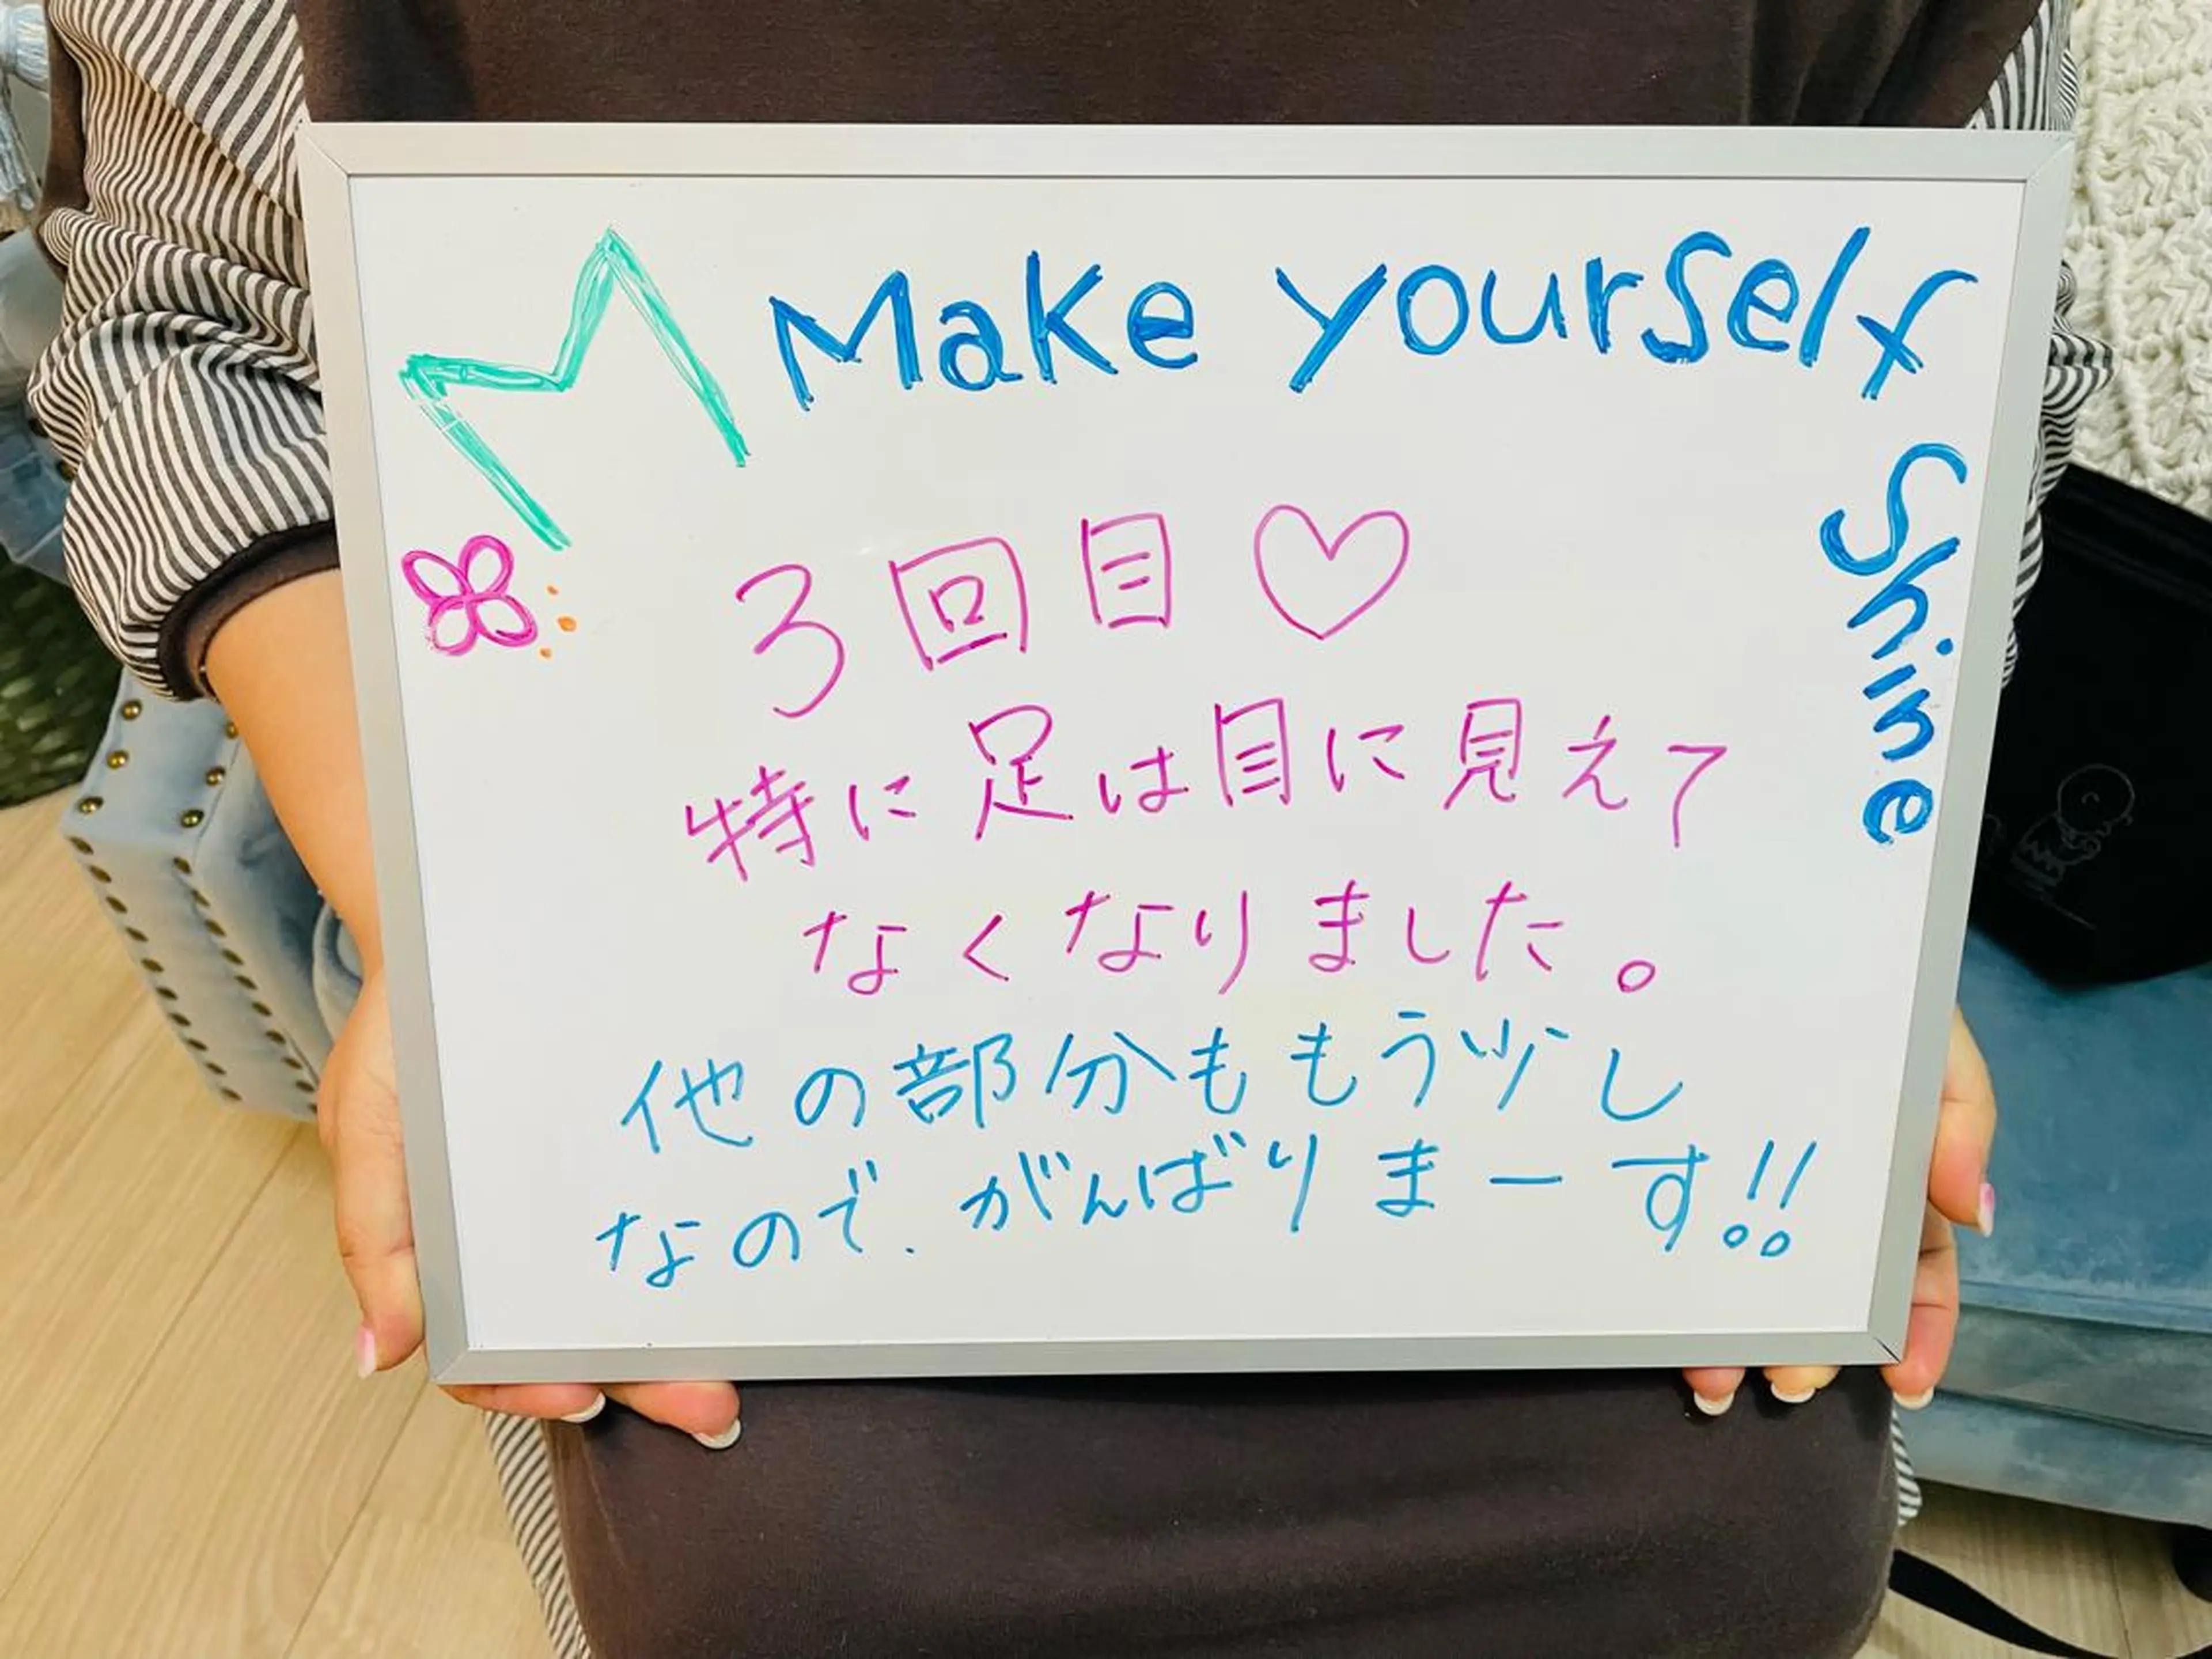 Make yourself
Shine
3回目♡
特に足は目に見えて
なくなりました。
他の部分ももう少し
なので、がんばりまーす!!